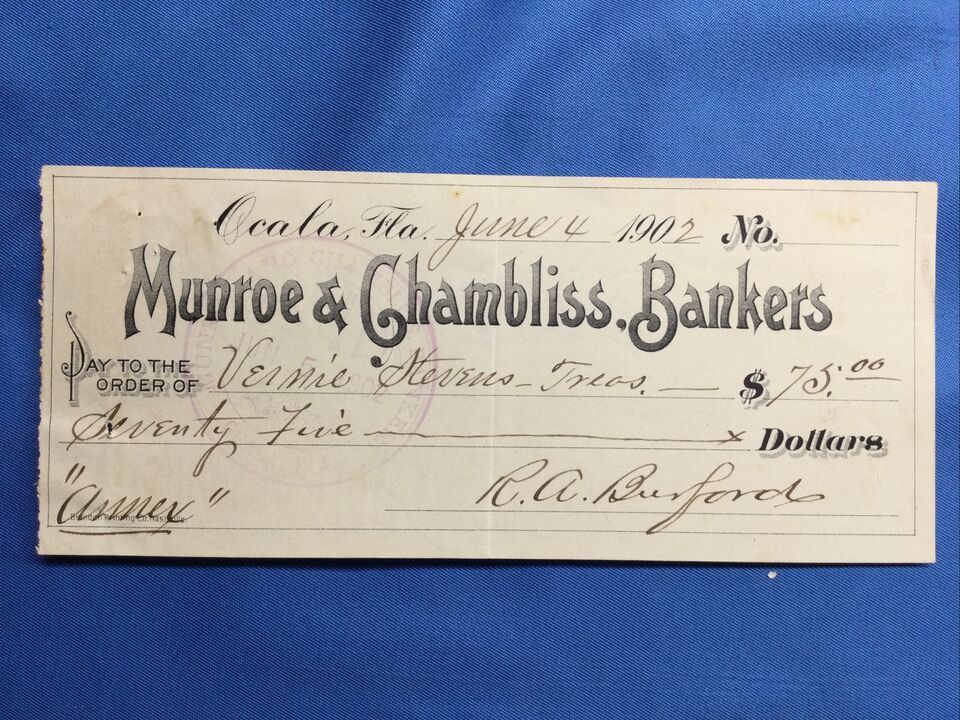 Ocala, Fla. June 4 1902 No.
Munroe & Chambliss, Bankers
PAY TO THE ORDER OF Vernie Stevens - Treas. — $ 75.00
Seventy Five — x Dollars
R. A. Burford
"Annex"
Brandon Printing Co. Nashville